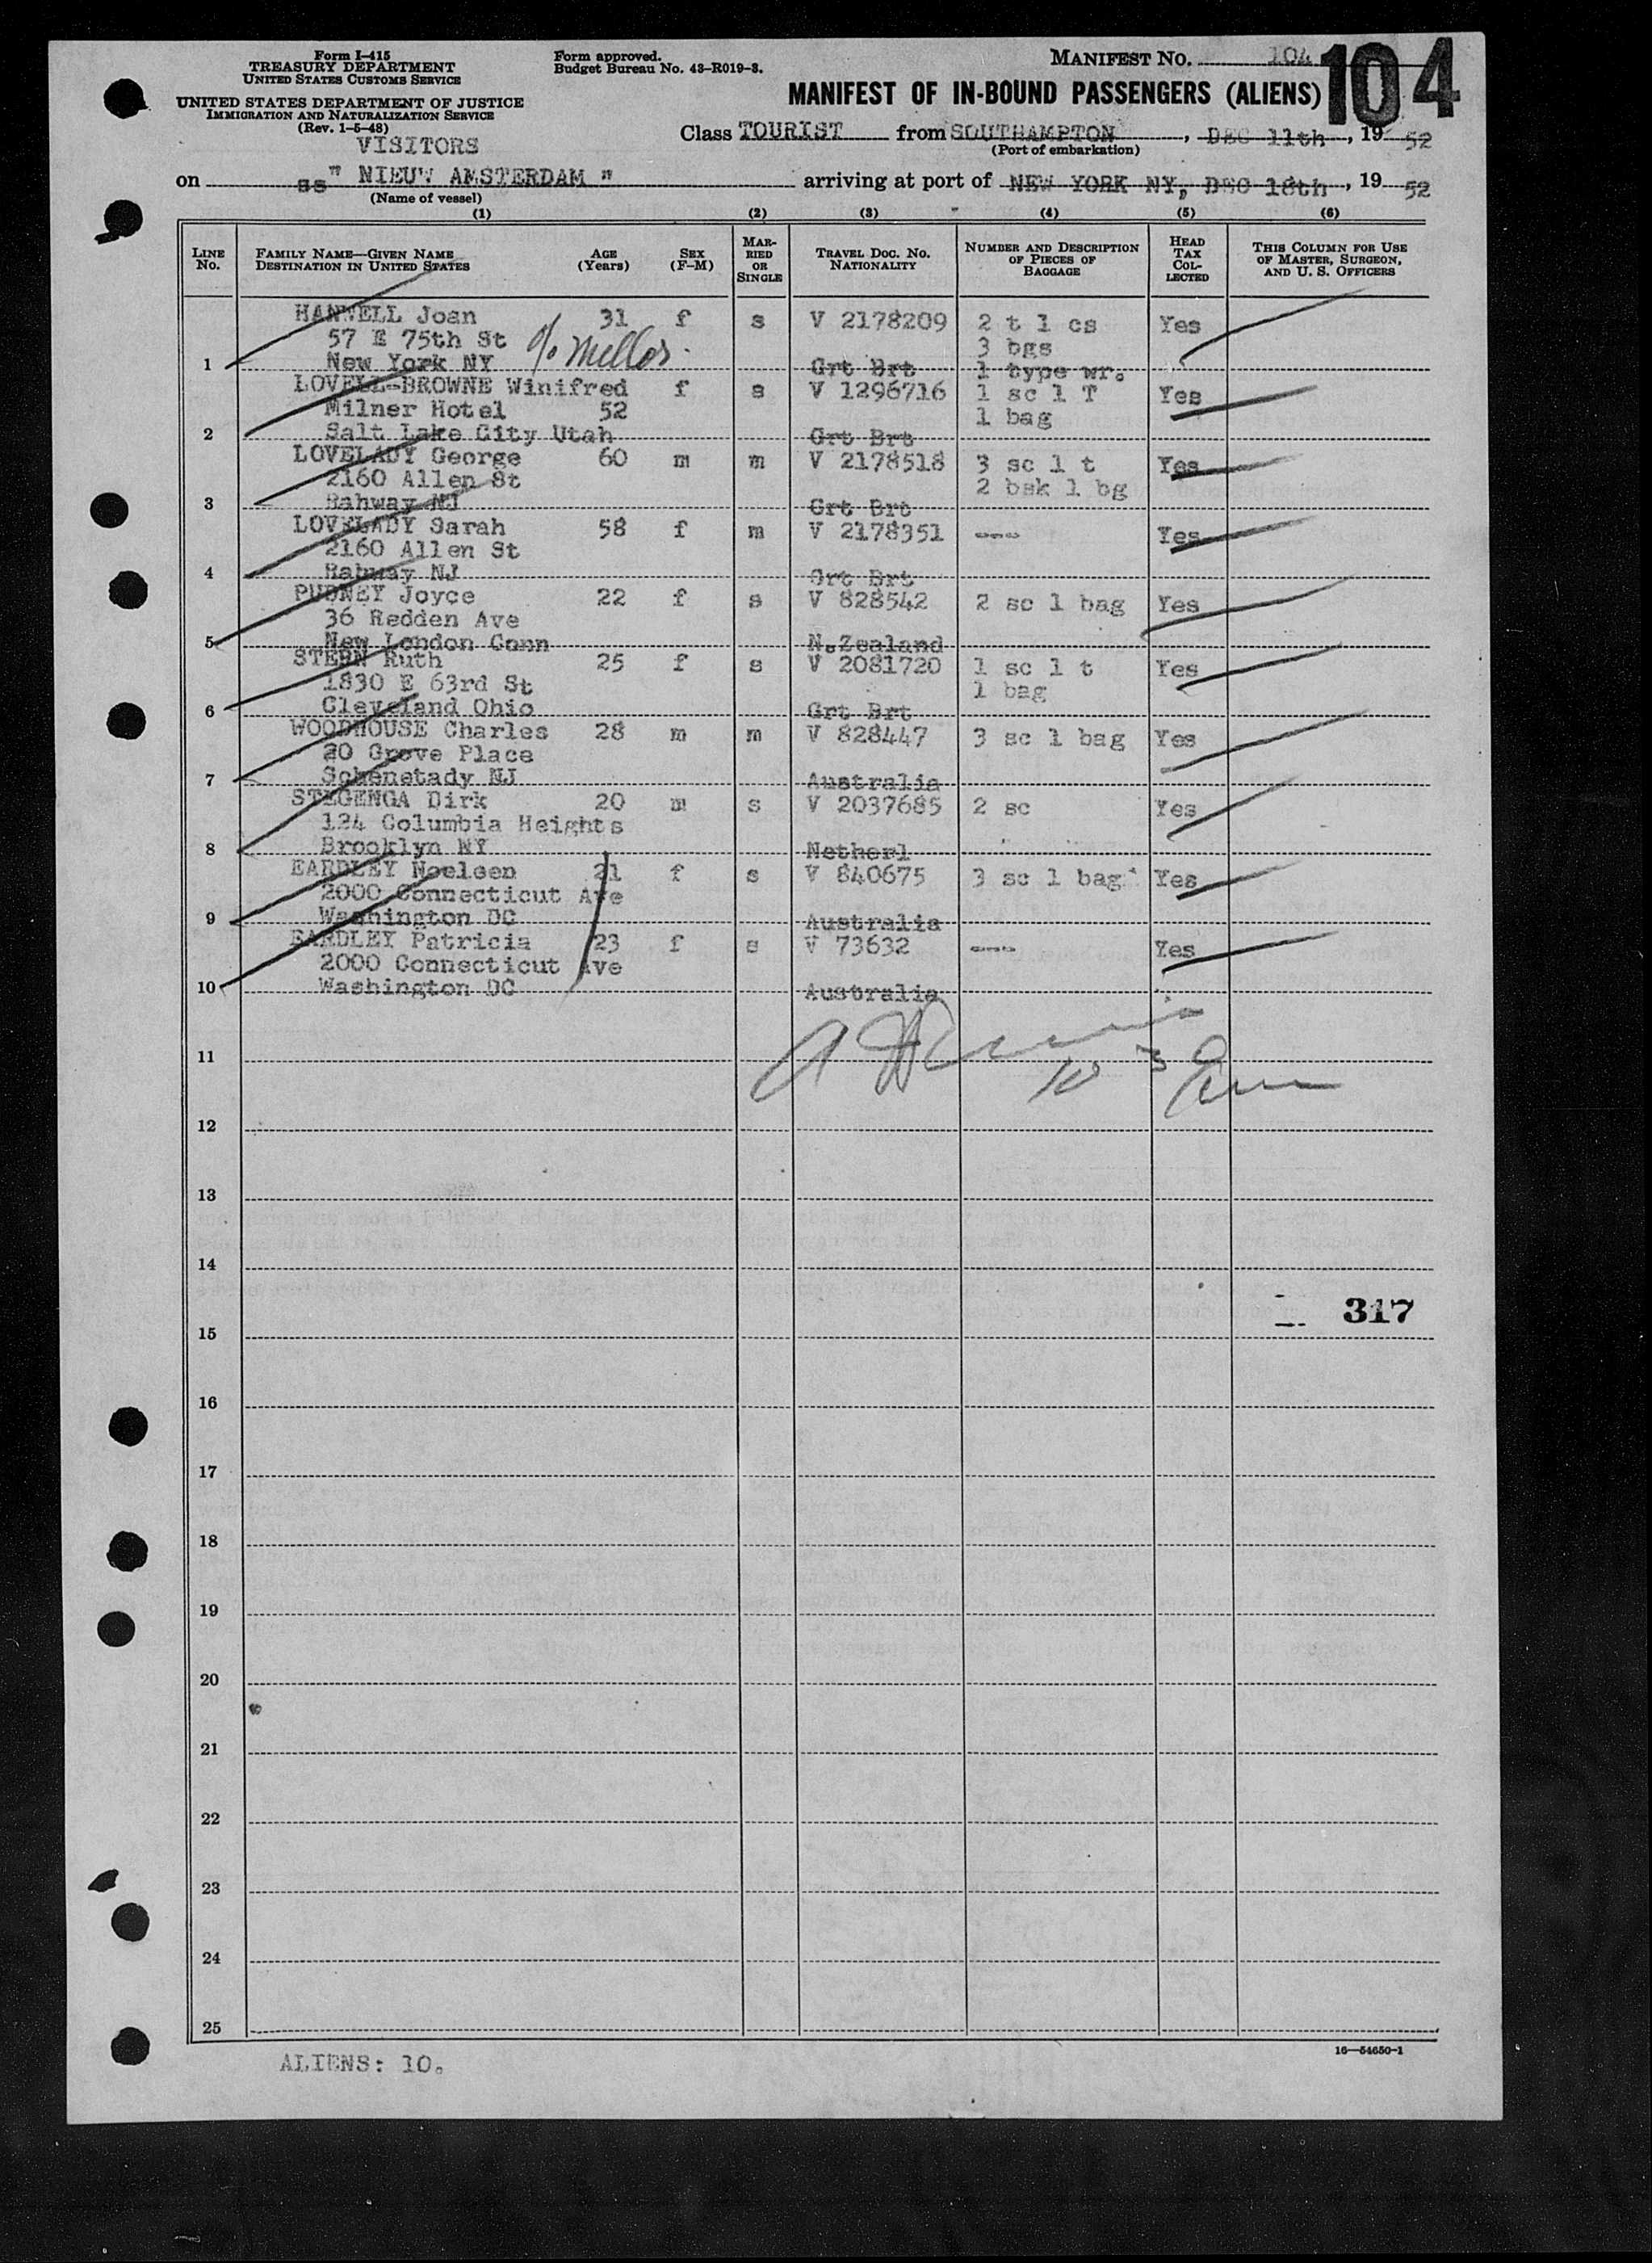 Form I-415
TREASURY DEPARTMENT
UNITED STATES CUSTOMS SERVICE
UNITED STATES DEPARTMENT OF JUSTICE
IMMIGRATION AND NATURALIZATION SERVICE
(Rev. 1-5-48)
VISITORS
Form approved.
Budget Bureau No. 43-R019-3.
MANIFEST NO. 104
104
MANIFEST OF IN-BOUND PASSENGERS (ALIENS)
Class TOURIST from SOUTHAMPTON, DEC 11th, 19 52
(Port of embarkation)
on ss" NIEUW AMSTERDAM " arriving at port of NEW YORK NY, DEC 18th, 19 52
(Name of vessel)
(1) (2) (3) (4) (5) (6)
LINE No. FAMILY NAME—GIVEN NAME DESTINATION IN UNITED STATES AGE (Years) SEX (F-M) MARRIED OR SINGLE TRAVEL DOC. NO. NATIONALITY NUMBER AND DESCRIPTION OF PIECES OF BAGGAGE HEAD TAX COLLECTED THIS COLUMN FOR USE OF MASTER, SURGEON, AND U. S. OFFICERS
HANWELL Joan 31 f s V 2178209 2 t 1 cs Yes
57 E 75th St c/o Mellor 3 bgs
1 New York NY Grt Brt 1 type wr.
LOVELL-BROWNE Winifred f s V 1296716 1 sc 1 T Yes
Milner Hotel 52 1 bag
2 Salt Lake City Utah Grt Brt
LOVELADY George 60 m m V 2178518 3 sc 1 t Yes
2160 Allen St 2 bsk 1 bg
3 Rahway NJ Grt Brt
LOVELADY Sarah 58 f m V 2178351 ---- Yes
2160 Allen St
4 Rahway NJ Grt Brt
PUDNEY Joyce 22 f s V 828542 2 sc 1 bag Yes
36 Redden Ave
5 New London Conn N.Zealand
STERN Ruth 25 f s V 2081720 1 sc 1 t Yes
1830 E 63rd St 1 bag
6 Cleveland Ohio Grt Brt
WOODHOUSE Charles 28 m m V 828447 3 sc 1 bag Yes
20 Grove Place
7 Schenetady NJ Australia
STEGENGA Dirk 20 m s V 2037685 2 sc Yes
124 Columbia Heights
8 Brooklyn NY Netherl
EARDLEY Noeleen 21 f s V 840675 3 sc 1 bag Yes
2000 Connecticut Ave
9 Washington DC Australia
EARDLEY Patricia 23 f s V 73632 ---- Yes
2000 Connecticut Ave
10 Washington DC Australia
11
12
13
14
317
15
16
17
18
19
20
21
22
23
24
25
16—54650-1
ALIENS: 10.